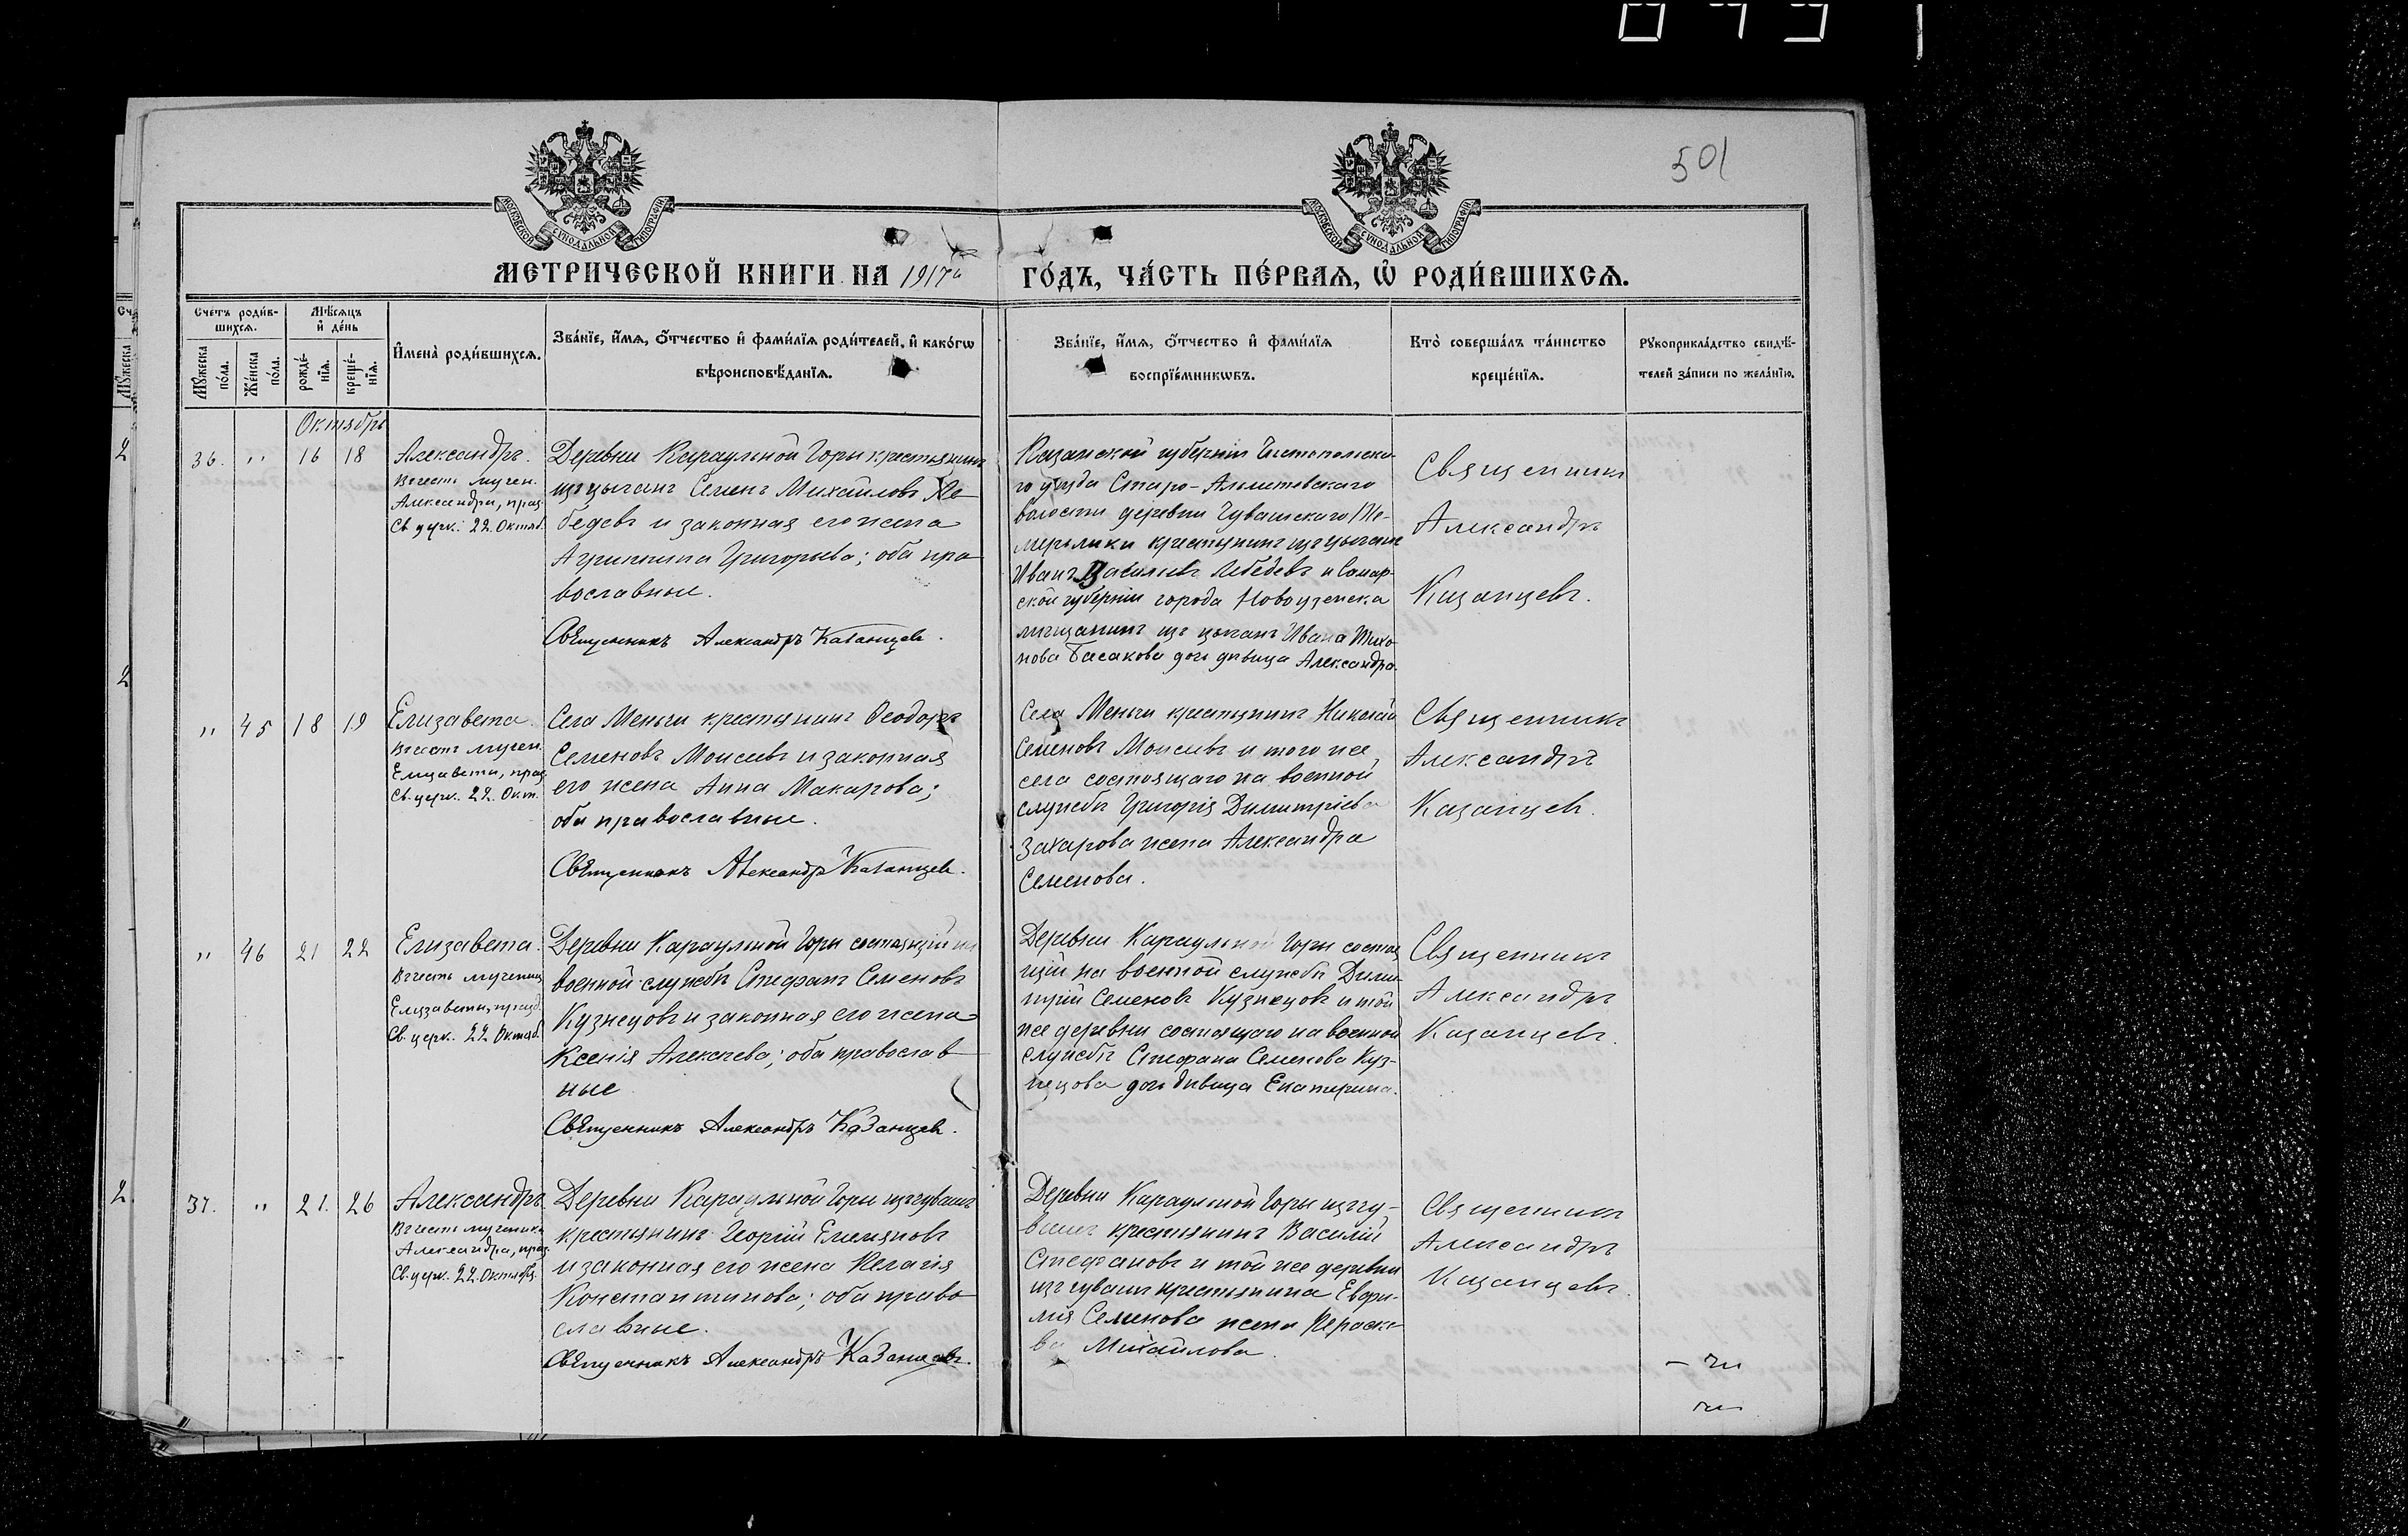 501
МОСКОВСКОЙ СѴНОДАЛЬНОЙ ТИПОГРАФІИ
МОСКОВСКОЙ СѴНОДАЛЬНОЙ ТИПОГРАФІИ
МЕТРИЧЕСКОЙ КНИГИ НА 1917й ГО́ДЪ, ЧА́СТЬ ПЕ́РВАѦ, Ѡ҆ РОДИ́ВШИХСѦ.
Счетъ роди́в-
шихсѧ.
Мꙋжеска
по́ла.
Же́нска
по́ла.
Мѣ́сѧцъ
и҆ де́нь
рожде́-
нїѧ.
креще́-
нїѧ.
И҆мена̀ роди́вшихсѧ.
Зва́нїе, и҆́мѧ, ѻ҆́тчество и҆ фами́лїѧ роди́телей, и҆ како́гѡ
вѣроисповѣ́данїѧ.
Зва́нїе, и҆́мѧ, ѻ҆́тчество и҆ фами́лїѧ
воспрїе́мникѡвъ.
Кто̀ соверша́лъ та́инство
креще́нїѧ.
Рꙋкоприкла́дство свидѣ́-
телей за́писи по жела́нїю.
Октябрь
36. " 16 18
Александръ.
Въ честь мучен.
Александра, праз.
Св. церк. 22. Октяб.
Деревни Караульной Горы крестьянинъ
изъ цыганъ Семенъ Михаиловъ Ле-
бедевъ и законная его жена
Агриппина Григорьева; оба пра-
вославные.
Священникъ Александръ Казанцевъ.
Казанской губерніи Чистопольска-
го уѣзда Старо-Альметевскаго
волости деревни Чувашскаго
крестьянинъ изъ цыганъ
Иванъ Васильевъ Лебедевъ и Самар-
ской губерніи города Новоузенска
мѣщанинъ изъ цыганъ Ивана Тихо-
нова Басакова дочь дѣвица Александра.
Священникъ
Александръ
Казанцевъ.
" 45 18 19
Елизавета.
Въ честь мучен.
Елизаветы, праз.
Св. церк. 22. Окт.
Села Меньчи крестьянинъ Ѳеодоръ
Семеновъ Моисеевъ и законная
его жена Анна Макарова;
оба православные.
Священникъ Александръ Казанцевъ.
Села Меньчи крестьянинъ Николай
Семеновъ Моисеевъ и того же
села состоящаго на военной
службѣ Григорія Димитріева
Захарова жена Александра
Семенова.
Священникъ
Александръ
Казанцевъ.
" 46 21 22
Елизавета.
Въ честь мучениц.
Елизаветы, празд.
Св. церк. 22 Октяб.
Деревни Караульной Горы состоящій на
военной службѣ Стефанъ Семеновъ
Кузнецовъ и законная его жена
Ксенія Алексѣева; оба православ-
ные
Священникъ Александръ Казанцевъ.
Деревни Караульной Горы состоя-
щій на военной службѣ Дими-
трій Семеновъ Кузнецовъ и той
же деревни состоящаго на военной
службѣ Стефана Семенова Куз-
нецова дочь дѣвица Екатерина.
Священникъ
Александръ
Казанцевъ.
37. " 21. 26
Александръ.
Въ честь мученика
Александра, праз.
Св. церк. 22. Октября.
Деревни Караульной Горы изъ чувашъ
крестьянинъ Георгій Емельяновъ
и законная его жена Пелагія
Константинова; оба право-
славные.
Священникъ Александръ Казанцевъ.
Деревни Караульной Горы изъ чу-
вашъ крестьянинъ Василій
Стефановъ и той же деревни
изъ чувашъ крестьянина Евфи-
мія Семенова жена Параске-
ва Михайлова.
Священникъ
Александръ
Казанцевъ.